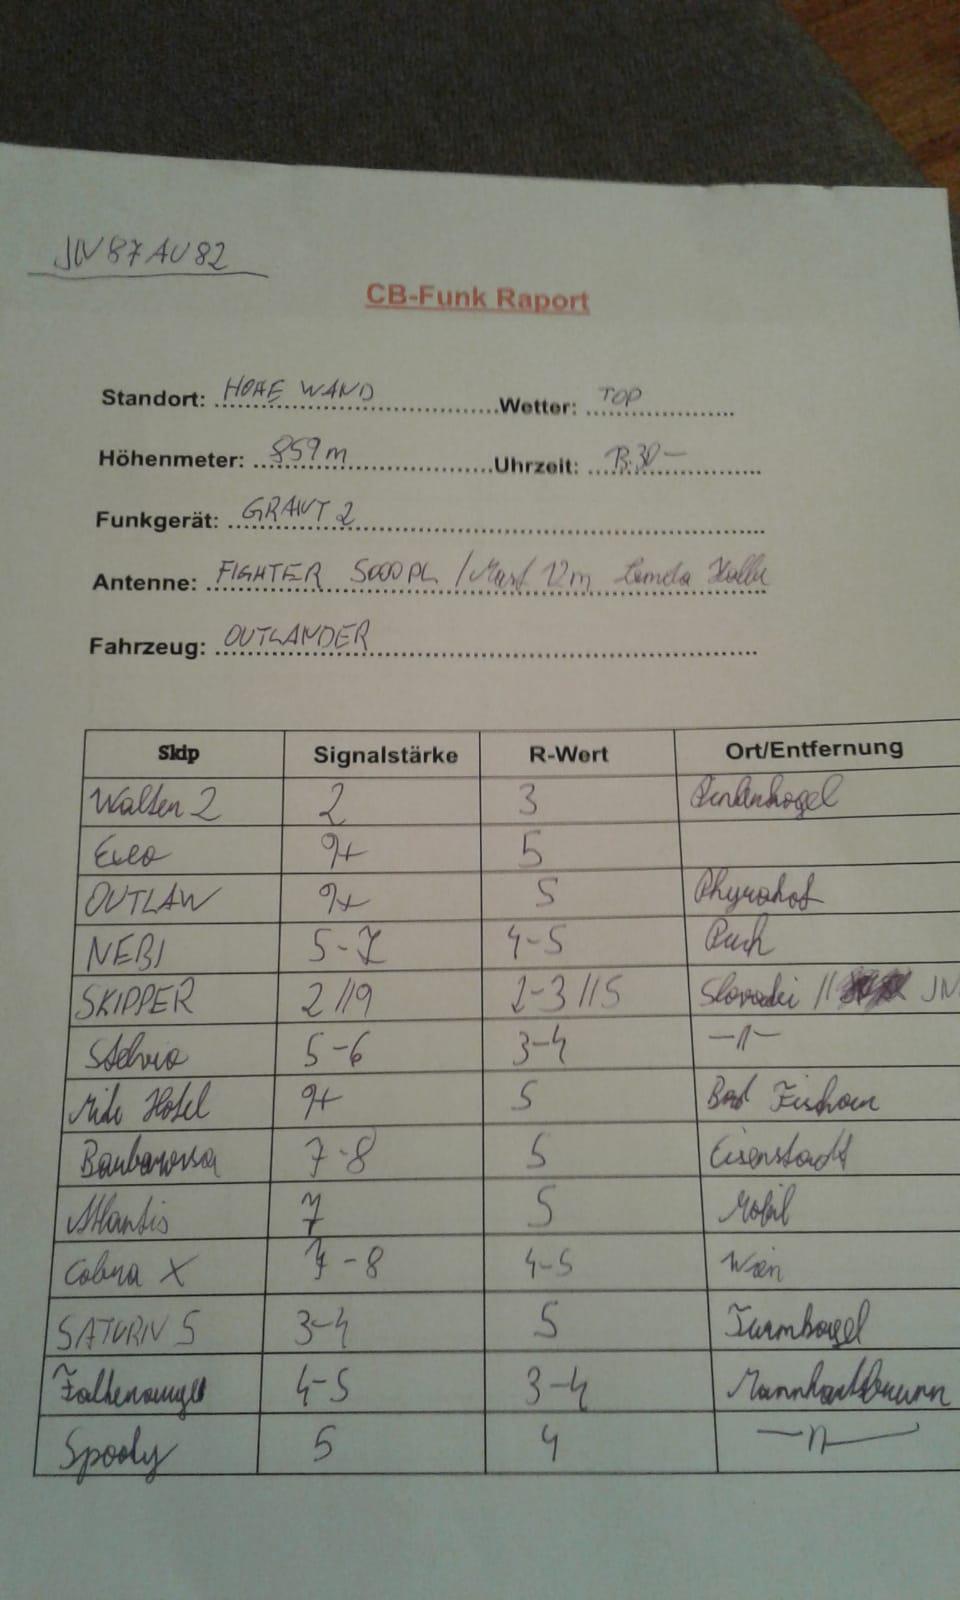 JN87AU82
CB-Funk Raport
Standort: HOHE WAND Wetter: TOP
Höhenmeter: 859m Uhrzeit: 13.30-
Funkgerät: GRANT 2
Antenne: FIGHTER 5000PL / Mast 12m
Fahrzeug: OUTLANDER
Skip Signalstärke R-Wert Ort/Entfernung
Walter 2 2 3
9+ 5
OUTLAW 9+ 5 Phyrahof
NEBI 5-7 4-5 Puch
SKIPPER 2//9 2-3//5 Slovakei // JN
Stelvio 5-6 3-4 -"-
Mike Hotel 9+ 5 Bad Fischau
Barbarossa 7-8 5 Eisenstadt
Atlantis 7 5 Mobil
Cobra X 7-8 4-5 Wien
SATURN 5 3-4 5 Turmkogel
Falkenauge 4-5 3-4
Spooky 5 4 -"-